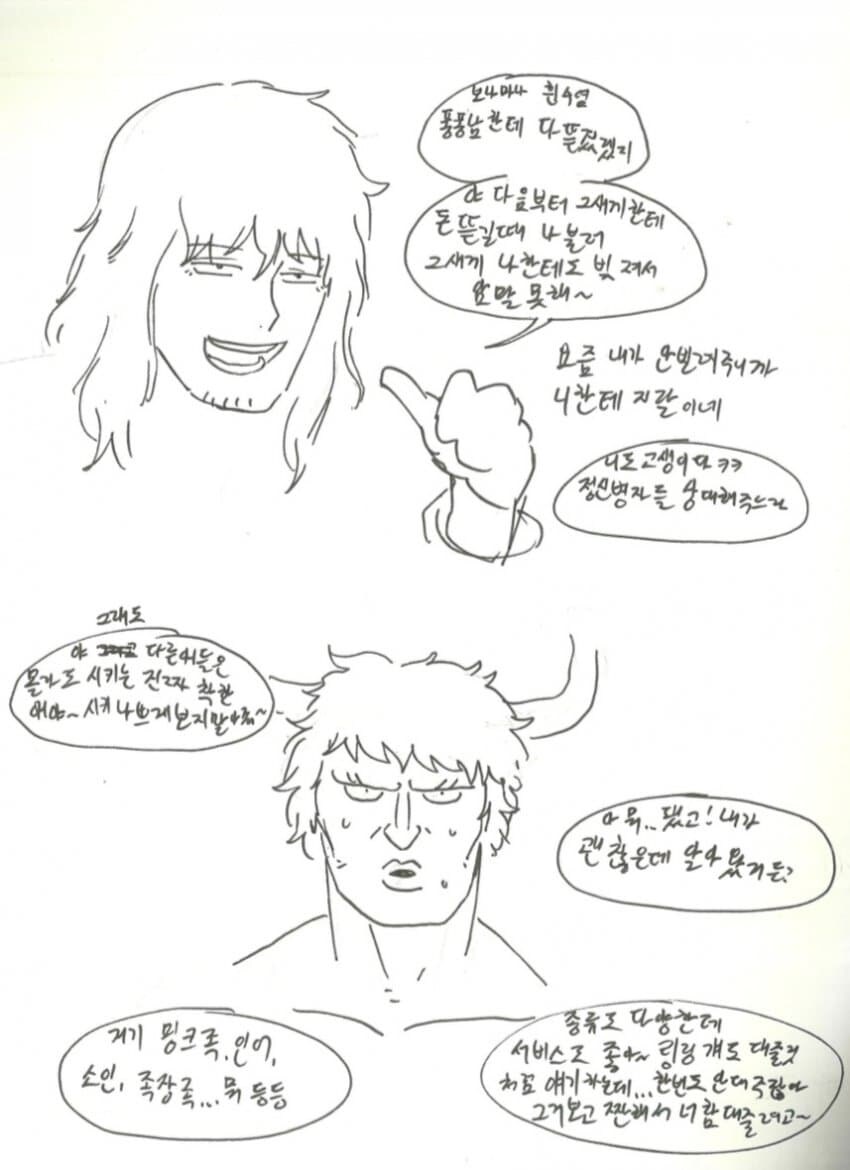 보나마나 흰수염
퐁퐁남한테 다 뜯겼겠지
야 다음부터 그새끼한테
돈 뜯길때 나 불러
그새끼 나한테도 빚 져서
암말 못해~
요즘 내가 안빌려주니까
니한테 지랄이네
니도 고생이다 ㅋㅋ
정신병자들 상대해주느라
그래도
야 다른애들은
몰라도 시키는 진짜 착한
애야~ 시키 나쁘게 보지말아줘~
아 뭐... 됐고! 내가
괜찮은데 알아 왔거든?
거기 밍크족, 인어,
소인, 족장족... 뭐 등등
종류도 다양한데
서비스도 좋아~ 링링 걔도 대줄것
처럼 얘기하는데... 한번도 안대주잖아
그거보고 짠해서 너 함 대줄려고~